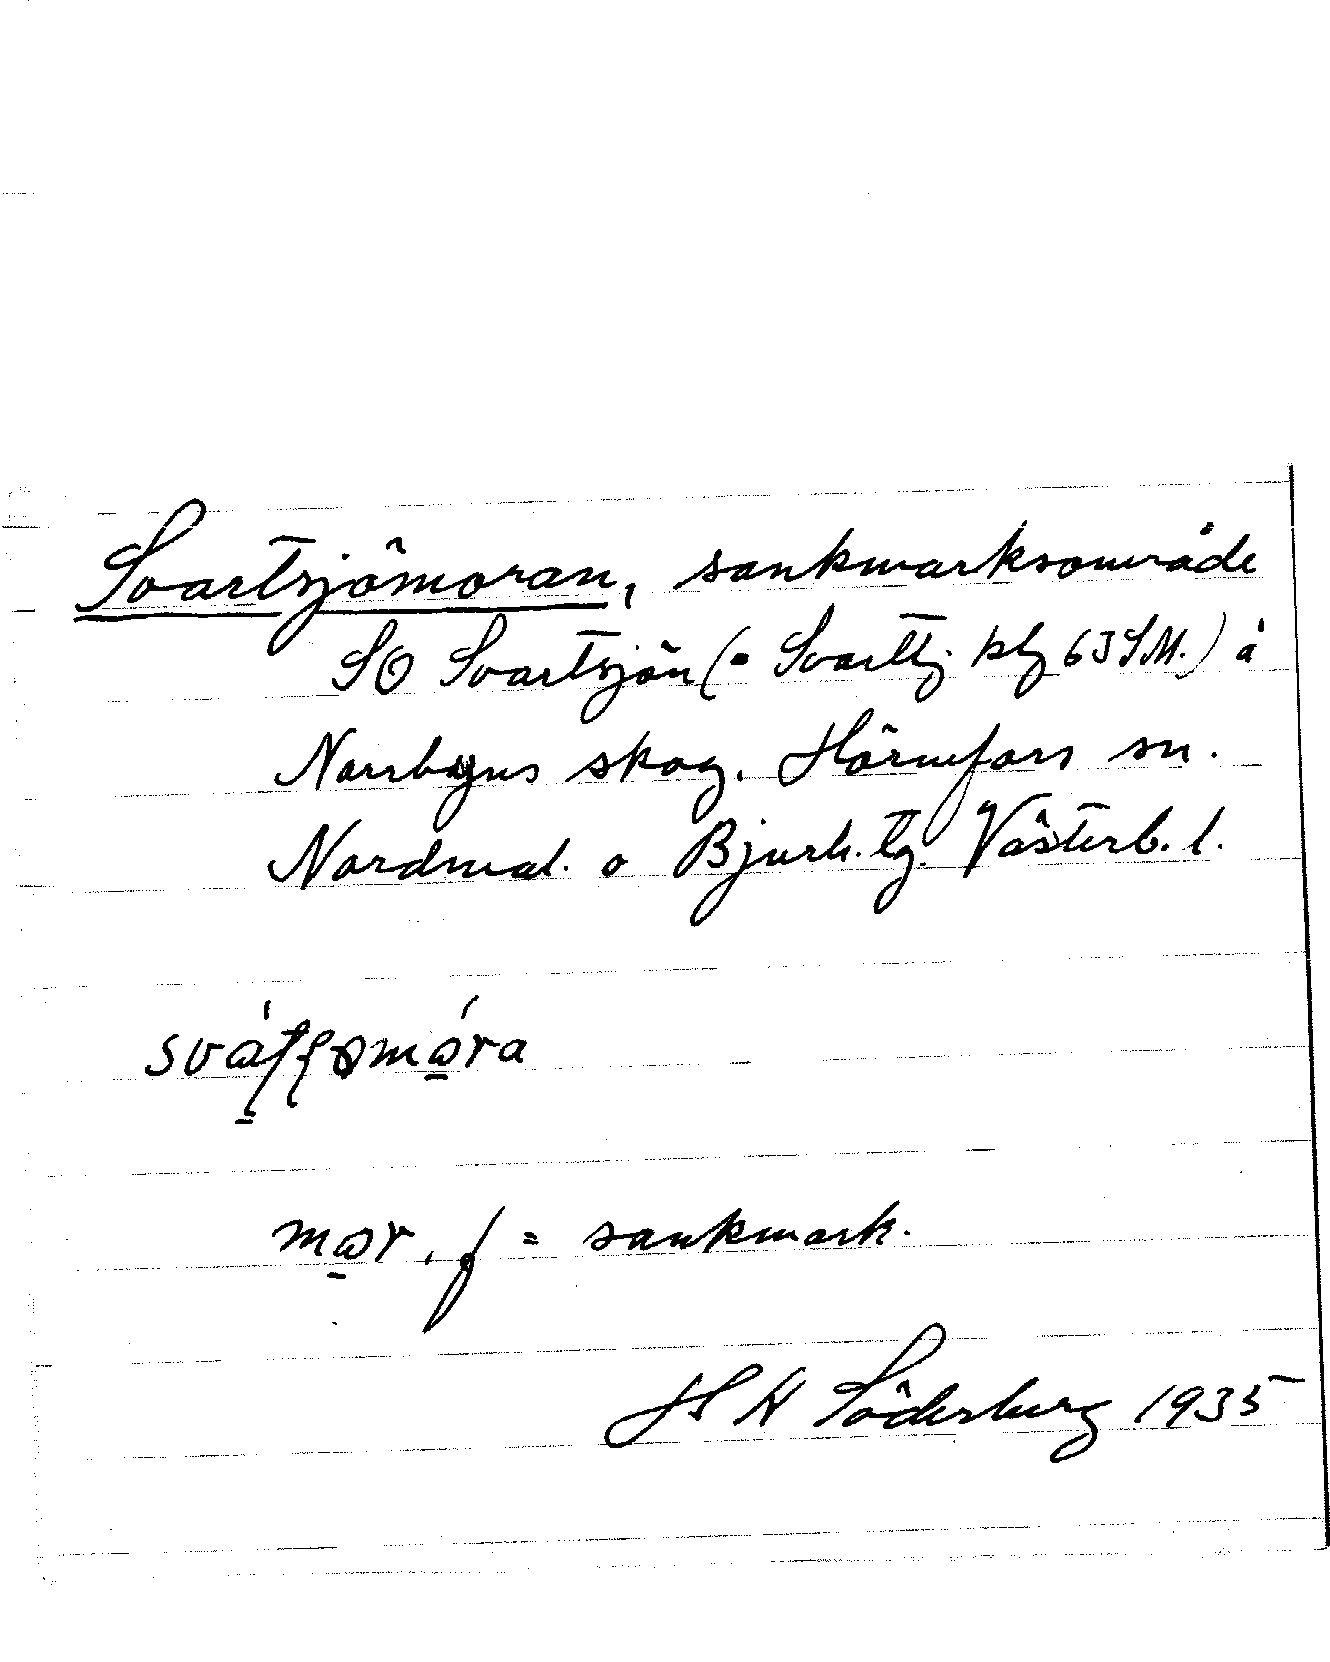 Svartsjömoran, sankmarksområde
SO Svartsjön (= Svarttj. kbl 63 SM.) å
Norrbyns skog. Hörnefors sn.
Nordmal. o Bjurh. tg. Västerb. l.
mɷr, f = sankmark.
H S H Söderberg 1935